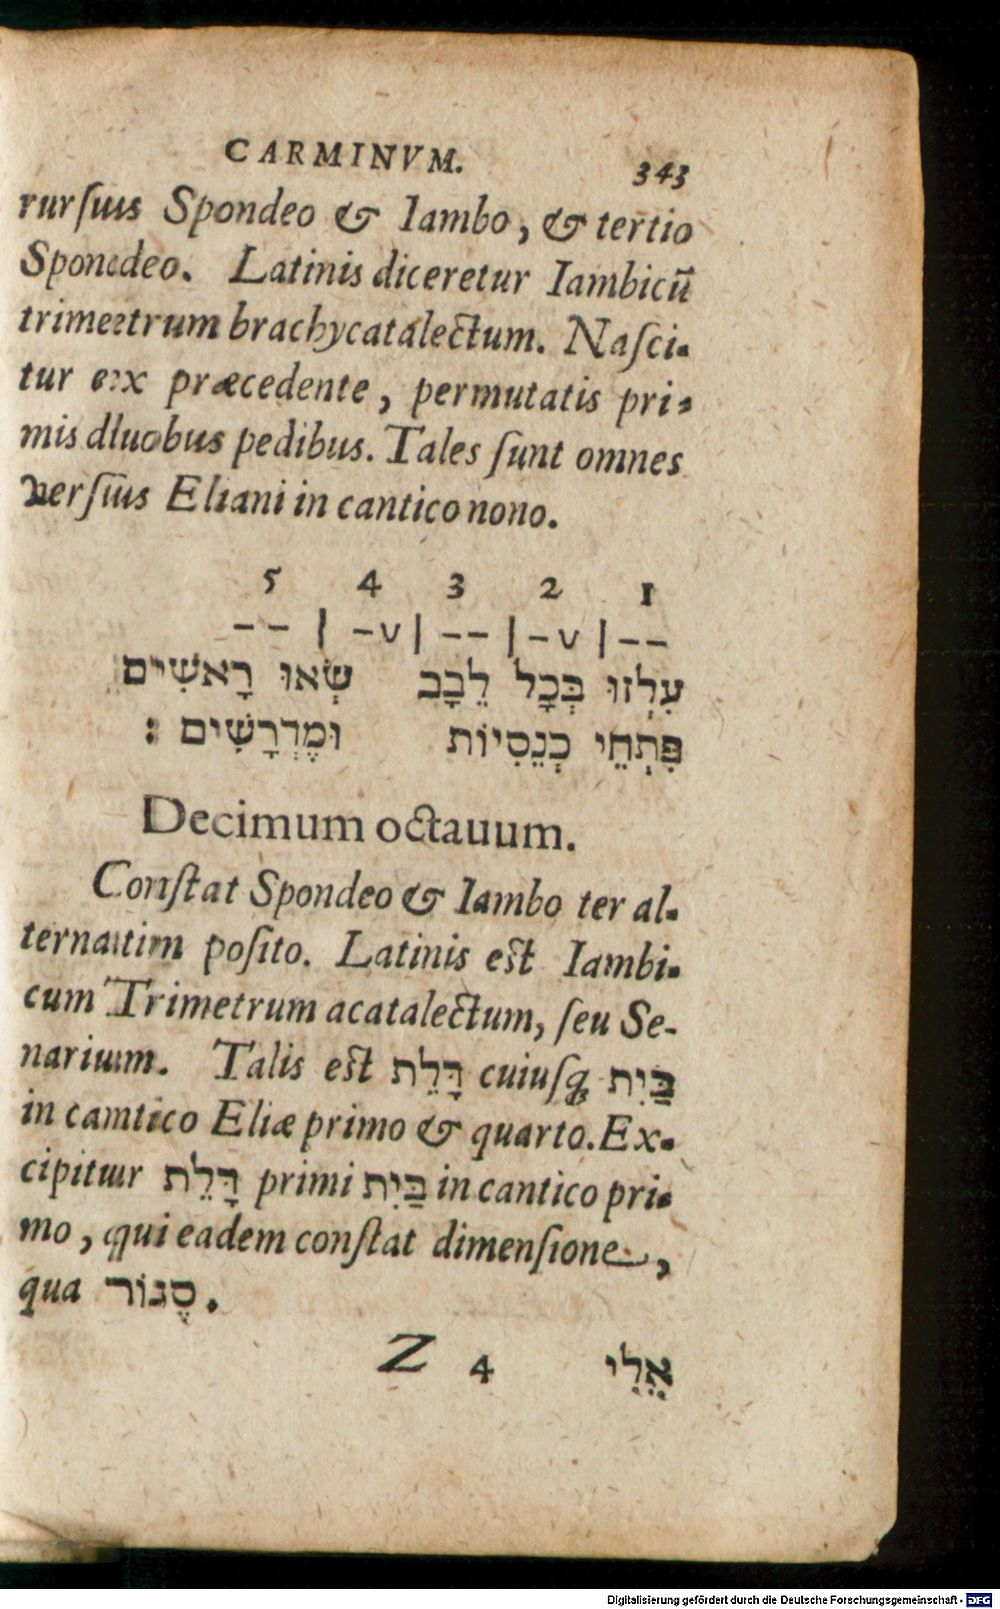 CARMINVM. 343
rursus Spondeo & Iambo, & tertio
Spondeo. Latinis diceretur Iambicũ
trimetrum brachycatalectum. Nasci-
tur ex præcedente, permutatis pri-
mis duobus pedibus. Tales sunt omnes
versus Eliani in cantico nono.
5 4 3 2 1
-- | -v | -- | -v | --
עִלְזוּ בְּכָל לֵבָב שְׂאוּ רָאשִׁים
פִּתְחֵי כְנֵסִיוֹת וּמֶדְרָשִׁים :
Decimum octauum.
Constat Spondeo & Iambo ter al-
ternatim posito. Latinis est Iambi-
cum Trimetrum acatalectum, seu Se-
narium. Talis est דָּלֵת cuiusq; בַּיִת
in cantico Eliæ primo & quarto. Ex-
cipitur דָּלֵת primi בַּיִת in cantico pri-
mo, qui eadem constat dimensione,
qua סֶגוֹר.
Z 4 אֱלֵי
Digitalisierung gefördert durch die Deutsche Forschungsgemeinschaft - DFG